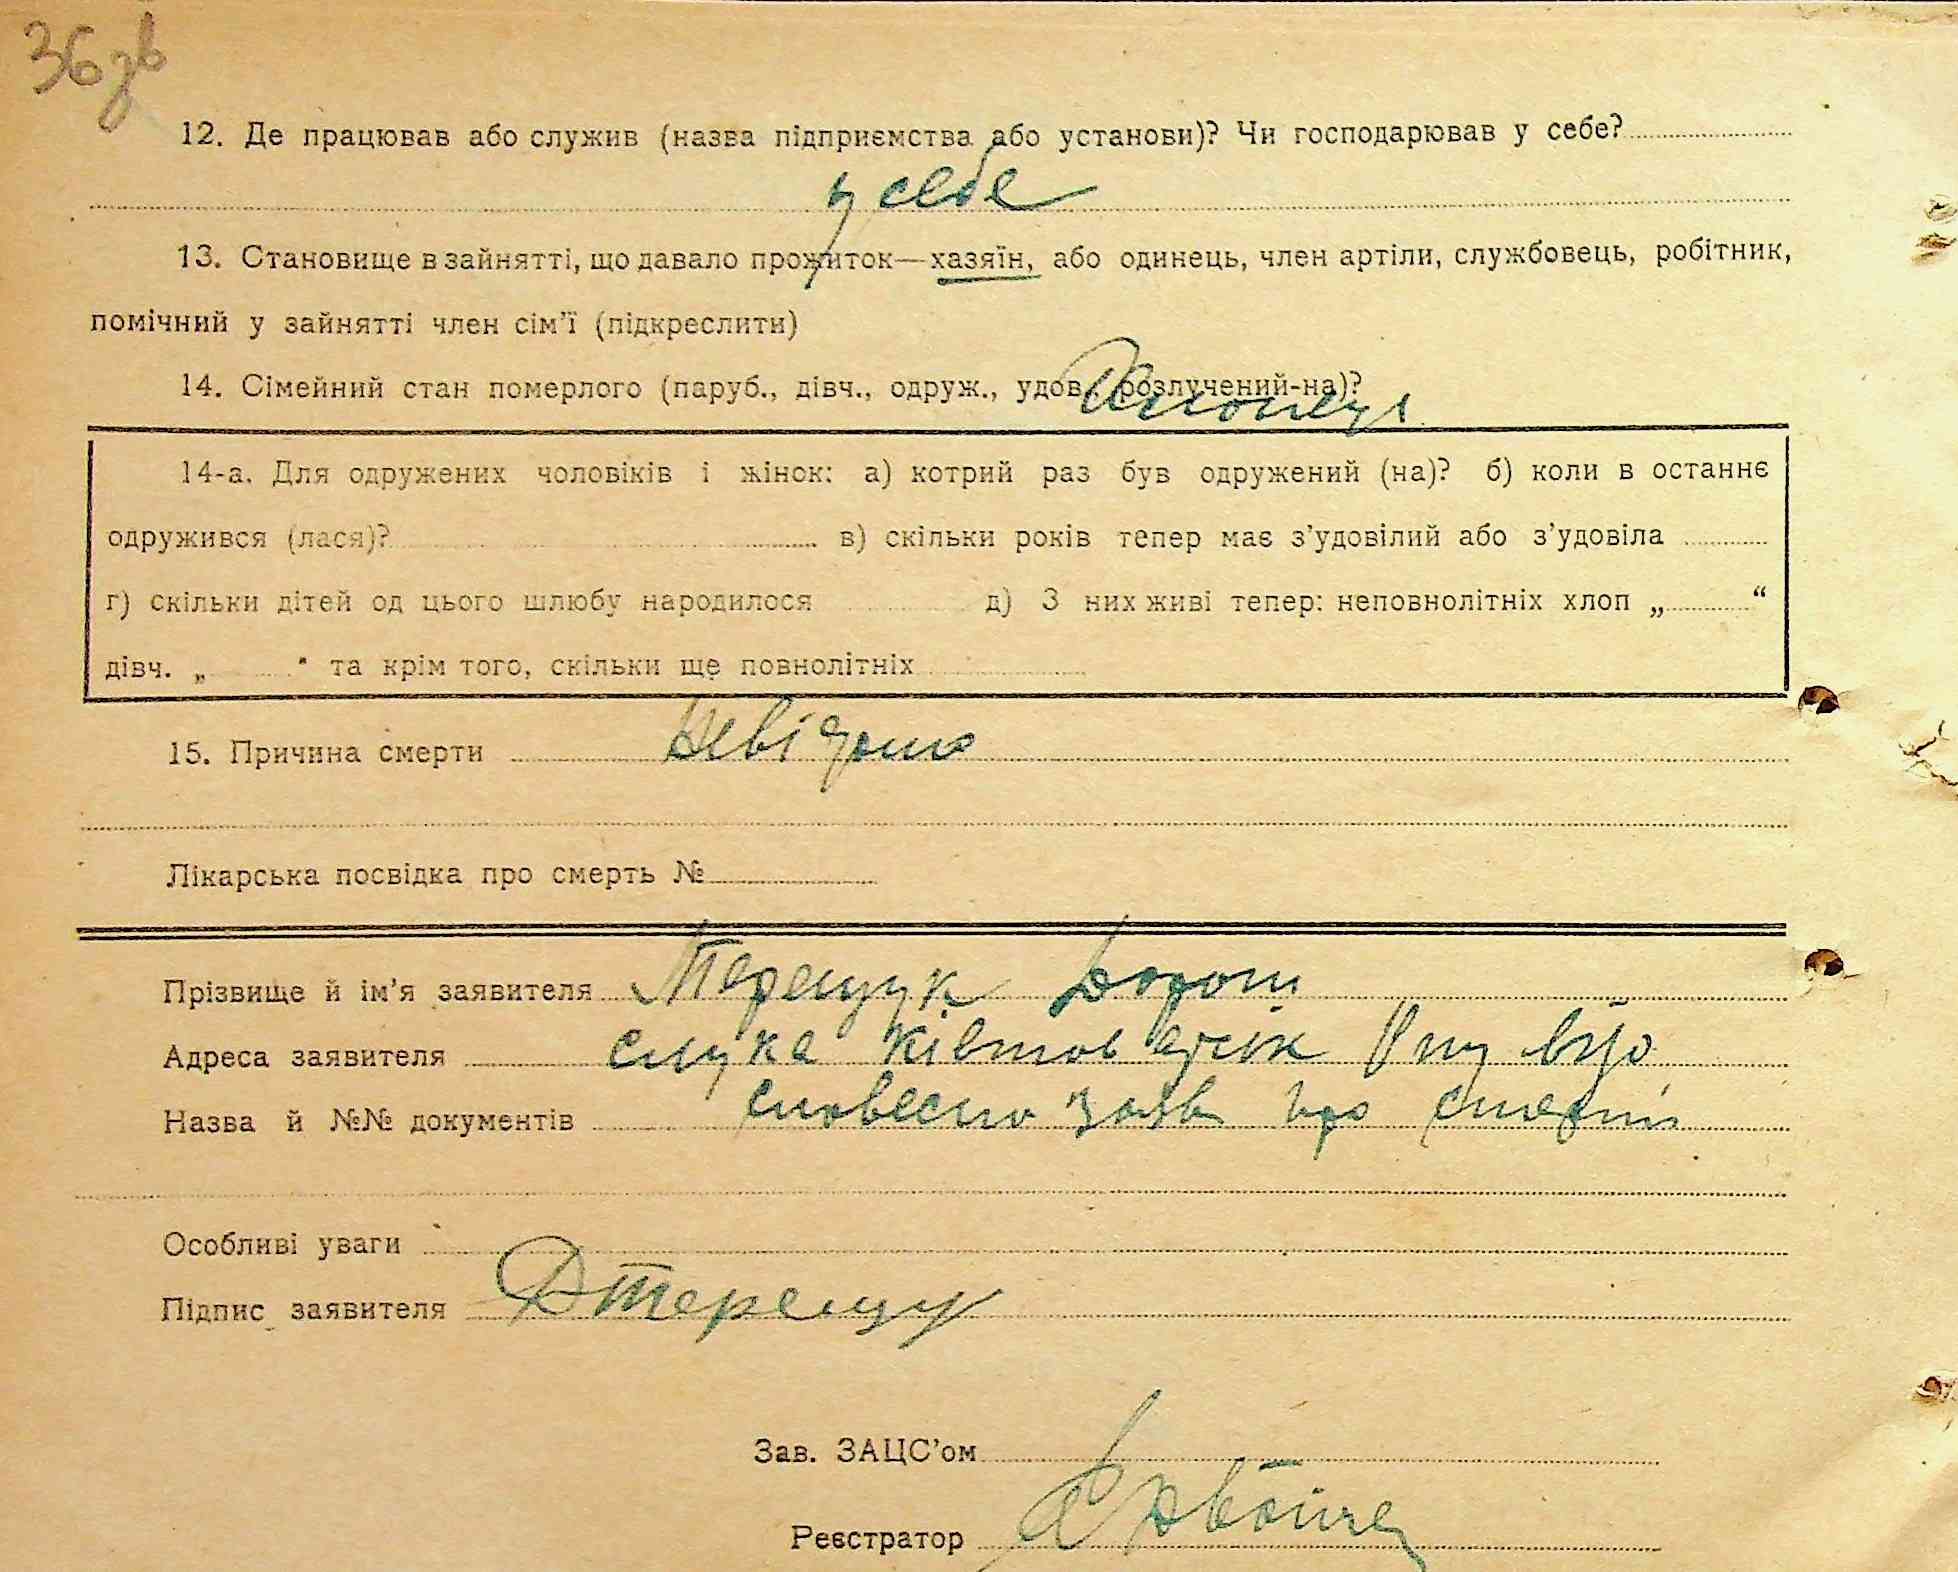 36 зв
12. Де працював або служив (назва підприємства або установи)? Чи господарював у себе?
у себе
13. Становище в зайнятті, що давало прожиток—хазяїн, або одинець, член артіли, службовець, робітник,
помічний у зайнятті член сім’ї (підкреслити)
14. Сімейний стан померлого (паруб., дівч., одруж., удов., розлучений-на)?
14-а. Для одружених чоловіків і жінок: а) котрий раз був одружений (на)? б) коли в останнє
одружився (лася)? в) скільки років тепер має з’удовілий або з’удовіла
г) скільки дітей од цього шлюбу народилося д) З них живі тепер: неповнолітніх хлоп „ “
дівч. „ “ та крім того, скільки ще повнолітніх
15. Причина смерти Невідома
Лікарська посвідка про смерть №
Прізвище й ім’я заявителя Терещук Дорош
Адреса заявителя
Назва й №№ документів словесно заяв про смерть
Особливі уваги
Підпис заявителя ДТерещу
Зав. ЗАЦС’ом
Реєстратор